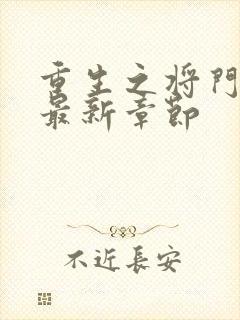 重生之将門
最新章節
不近長安